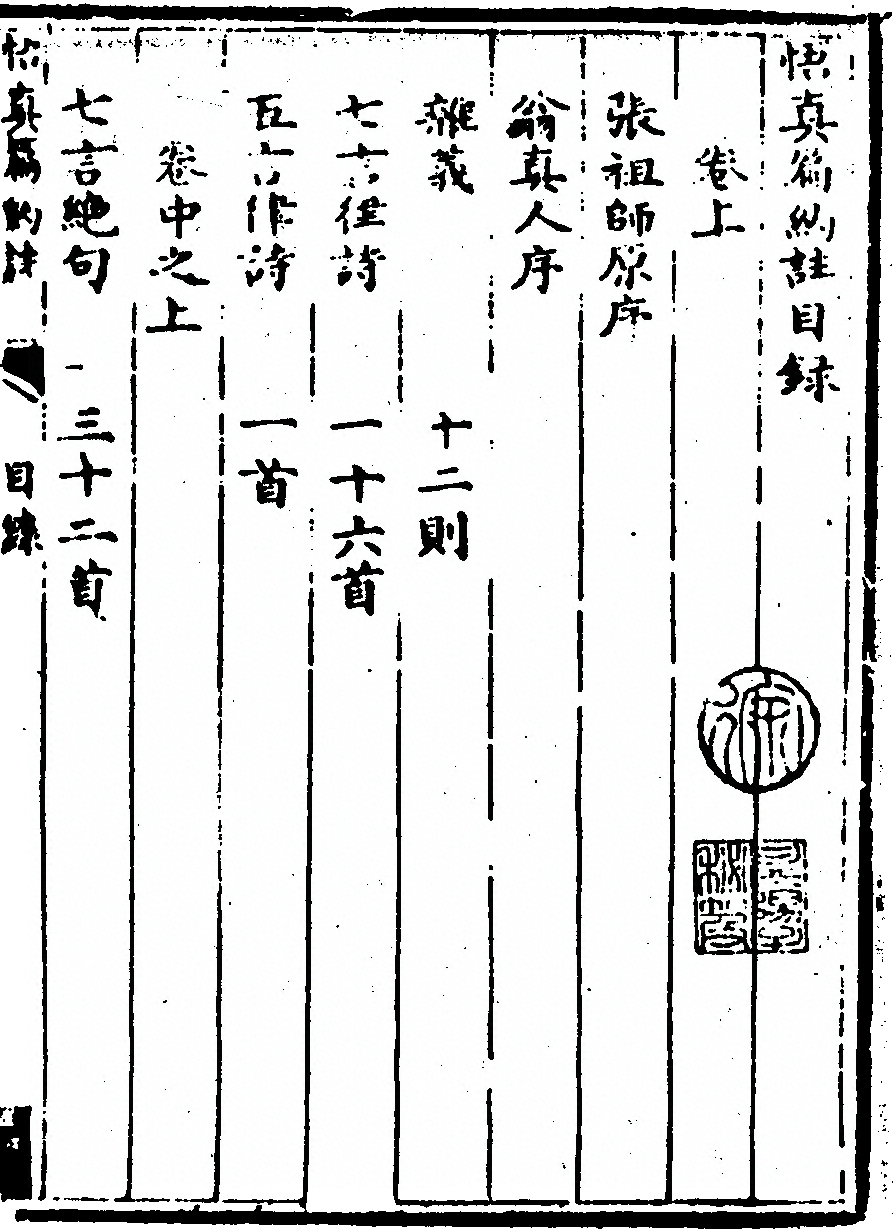 悟真篇約註目錄
卷上
張祖師原序
翁真人序
雜義 十二則
七言律詩 一十六首
五言律詩 一首
卷中之上
七言絕句 三十二首
悟真篇約註 目錄